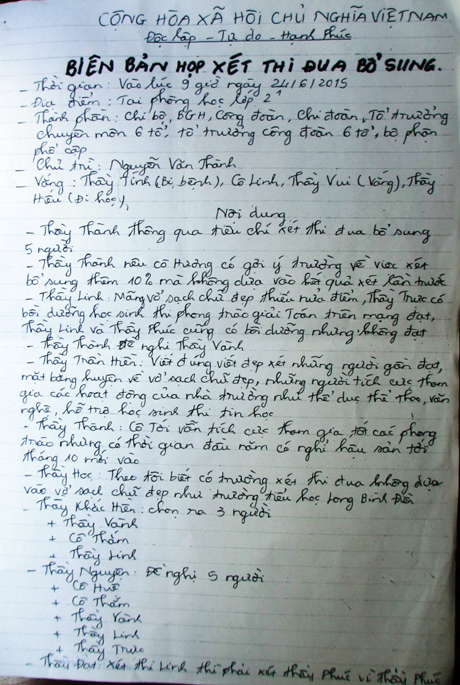 CỘNG HÒA XÃ HỘI CHỦ NGHĨA VIỆT NAM
Độc lập - Tự do - Hạnh Phúc
BIÊN BẢN HỌP XÉT THI ĐUA BỔ SUNG.
- Thời gian: Vào lúc 9 giờ ngày 24/6/2015
- Địa điểm: Tại phòng học lớp 2
- Thành phần: Chi bộ, BGH, Công đoàn, Chi đoàn, Tổ trưởng
chuyên môn 6 tổ, tổ trưởng công đoàn 6 tổ, bộ phận
phổ cập
- Chủ trì: Nguyễn Văn Thành
- Vắng: Thầy Tính (Bị bệnh), Cô Linh, Thầy Vui (Vắng), Thầy
Hiếu (Đi học),
Nội dung
- Thầy Thành thông qua tiêu chí xét thi đua bổ sung
5 người
- Thầy Thành nêu cô Hương có gởi ý trường về việc xét
bổ sung thêm 10% mà không dựa vào kết quả xét lần trước
- Thầy Linh: Mảng vở sạch chữ đẹp thiếu nửa điểm, Thầy Trực có
bồi dưỡng học sinh thi phong trào giải Toán trên mạng đạt,
Thầy Linh và Thầy Phúc cũng có bồi dưỡng nhưng không đạt
- Thầy Thành Đề nghị Thầy Vành
- Thầy Trần Hiền: Viết đúng viết đẹp xét những người gần đạt,
mặt bằng huyện về vở sạch chữ đẹp, những người tích cực tham
gia các hoạt động của nhà trường như thể dục thể thao, văn
nghệ, hỗ trợ học sinh thi tin học
- Thầy Thành: Cô Tới vẫn tích cực tham gia tốt các phong
trào nhưng có thời gian đầu năm có nghỉ hậu sản tới
tháng 10 mới vào
- Thầy Học: Theo tôi biết có trường xét thi đua không dựa
vào vở sạch chữ đẹp như trường tiểu học Long Bình Điền
- Thầy Khắc Hiền: chọn ra 3 người
+ Thầy Vành
+ Cô Thắm
+ Thầy Linh
- Thầy Nguyên: Đề nghị 5 người
+ Cô Huệ
+ Cô Thắm
+ Thầy Vành
+ Thầy Linh
+ Thầy Trực
- Thầy Đạt: Xét thi Linh thì phải xét thầy Phúc vì Thầy Phúc